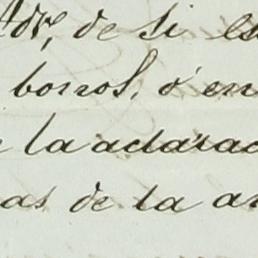 de si es
borros, ó en
la aclarac
as de la a